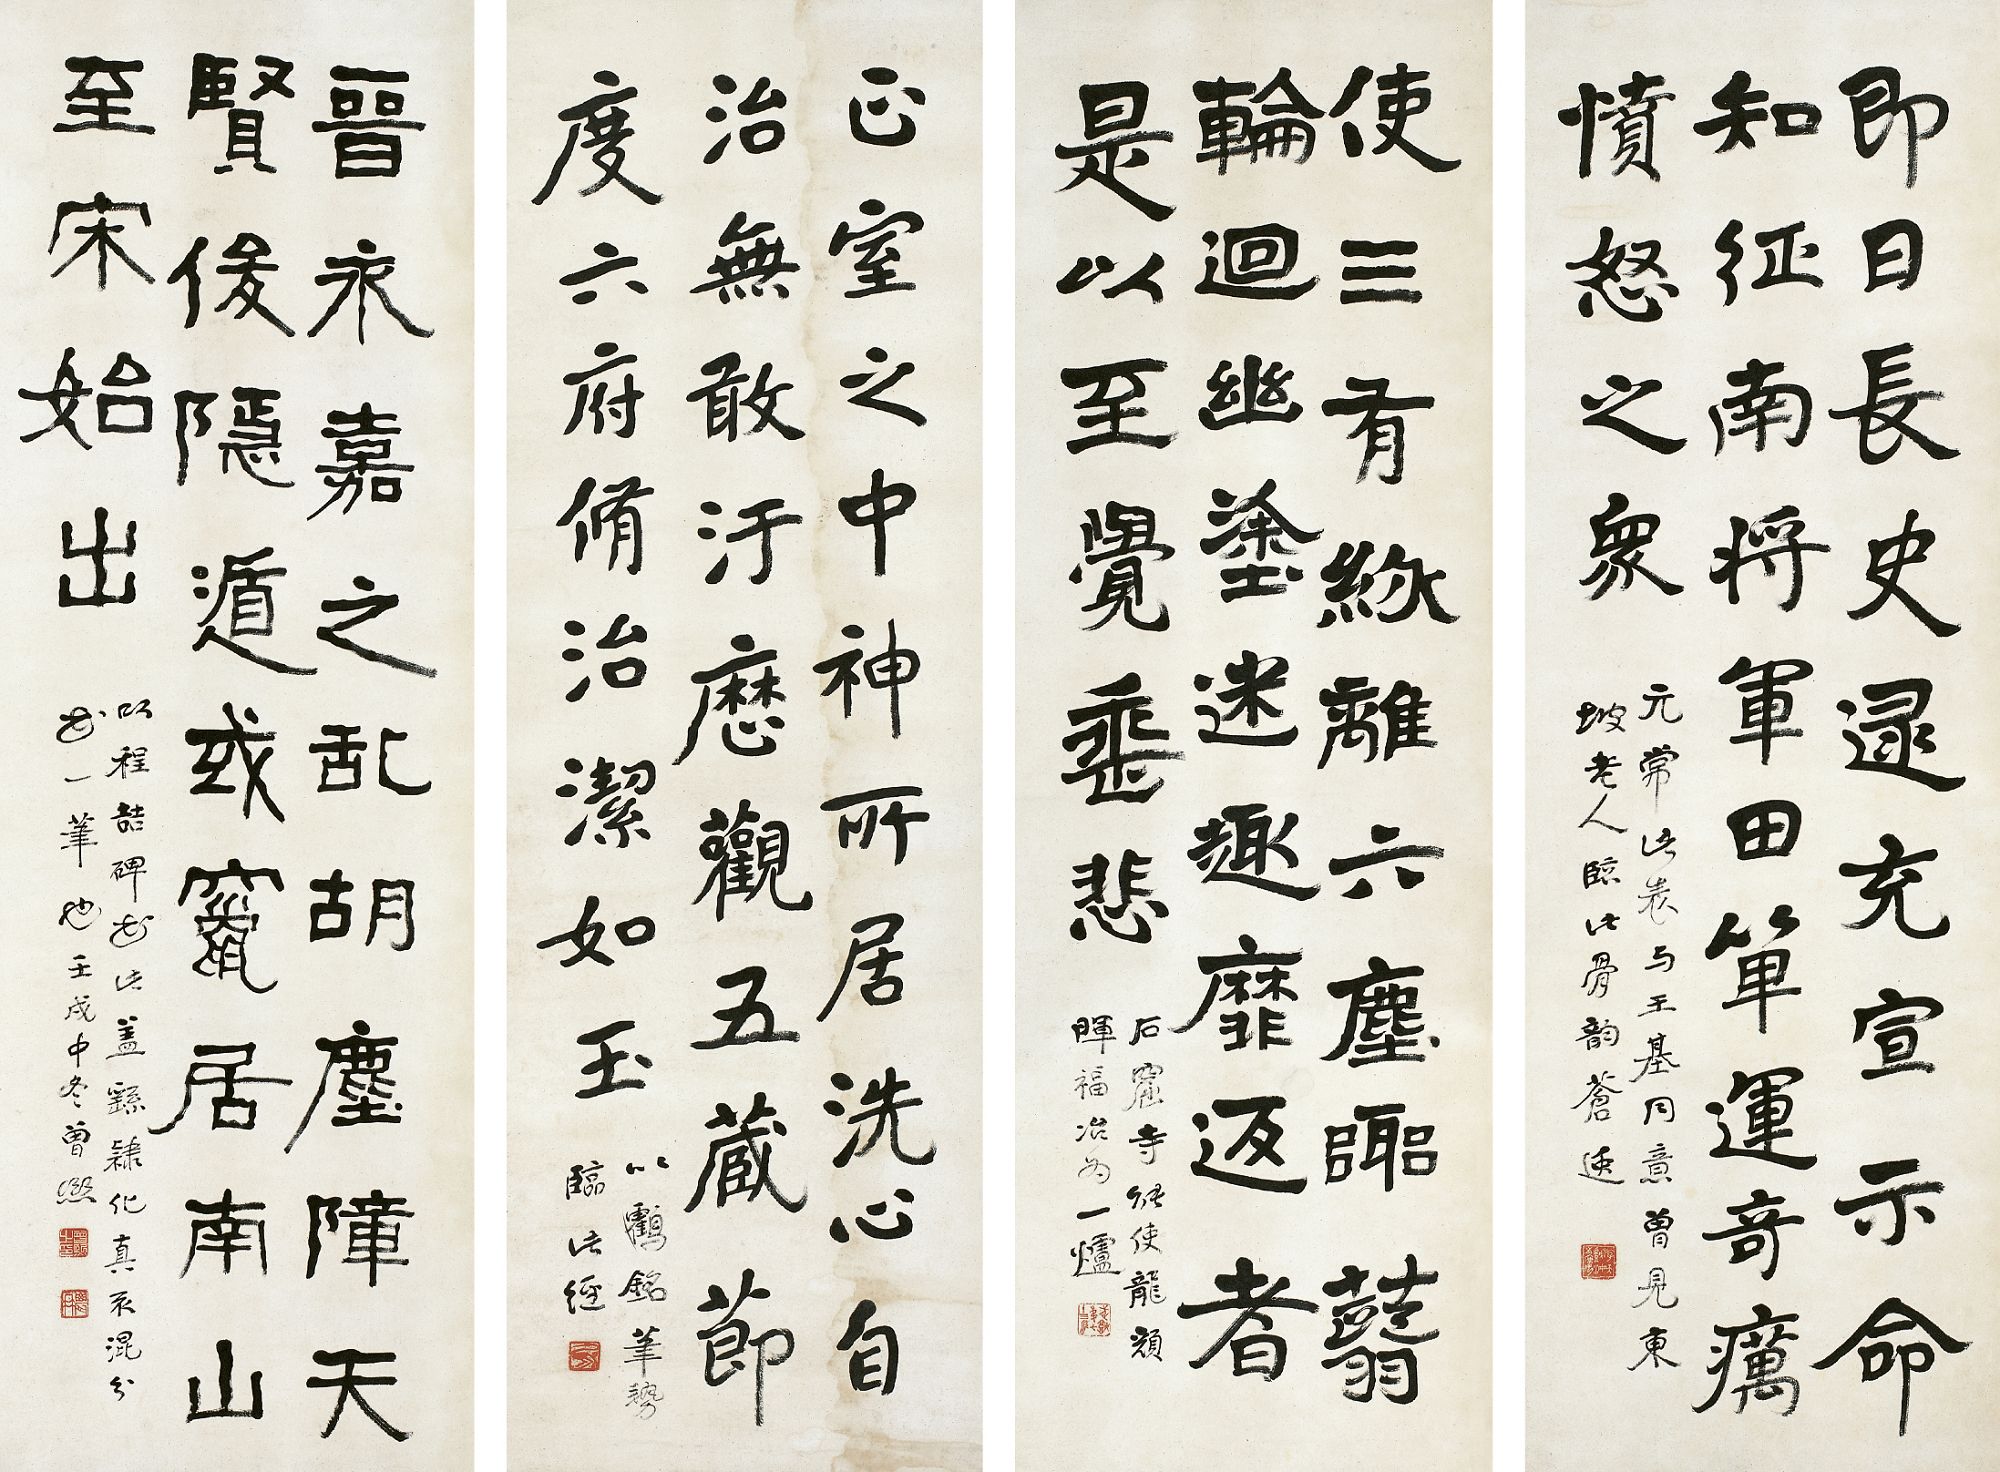 即日長史逯充宣示命
知征南将軍田單運奇厲
憤怒之衆
元常此表与王基同意曾見東
坡老人臨此骨韵蒼逸
使三有絲離六塵躑蘙
輪迴幽塗迷趣靡返者
是以至覺垂悲
石窟寺能使龍顏
暉福冶为一爐
正室之中神所居洗心自
治無敢汙歷觀五藏節
度六府脩治潔如玉
以鶴銘筆勢
臨此經
晉永嘉之乱胡塵障天
賢俊隱遁或竄居南山
至宋始出
以程喆碑書此蓋繇隸化真不混分
書一筆也壬戌中冬曾熙